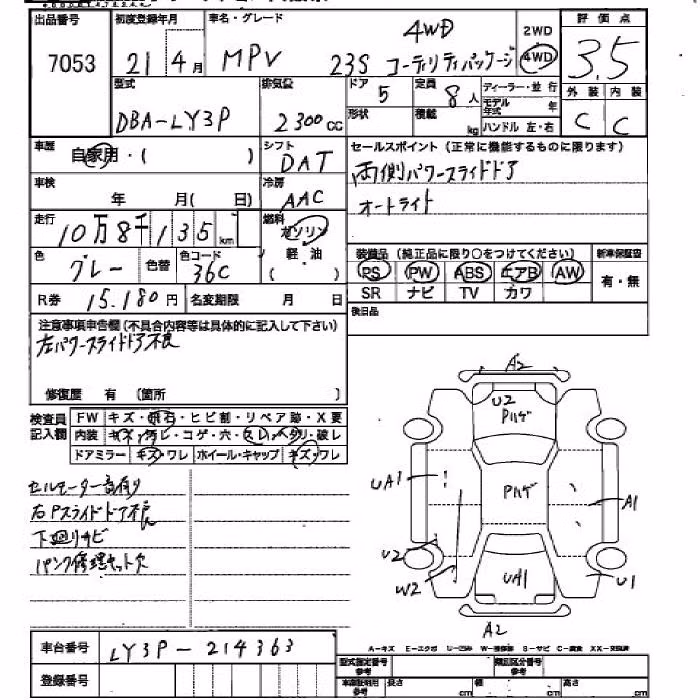 出品番号 初度登録年月 車名・グレード 4WD 2WD 評価点
7053 21年4月 MPV 23S コーディリティパッケージ 4WD 3.5
型式 排気量 ドア 5 定員 8人 ディーラー・並行 外装 内装
DBA-LY3P 2300cc 形状 積載 kg モデル年式 年 C C
ハンドル 左・右
車歴 自家用・( ) シフト DAT セールスポイント(正常に機能するものに限ります)
車検 年 月( 日) 冷房 AAC 両側パワースライドドア
オートライト
走行 10万8千135km 燃料 ガソリン 軽油 ( )
色 グレー 色替 色コード 36C
装備品(純正品に限り○をつけてください) 新車保証書
PS PW ABS エアB AW 有・無
SR ナビ TV カワ
R券 15.180円 名変期限 月 日
後日品
注意事項申告欄(不具合内容等は具体的に記入して下さい)
左パワースライドドア不良
修復歴 有 (箇所 )
検査員記入欄 FW キズ・飛石・ヒビ割・リペア跡・X要
内装 キズ・汚レ・コゲ・穴・スレ・ヘタリ・破レ
ドアミラー キズ・ワレ ホイール・キャップ キズ・ワレ
セルモーター音有り
右Pスライドドア不良
下廻りサビ
パンク修理キット欠
A2
U2
Pハゲ
UA1
Pハゲ
A1
U2
W2
UA1
U1
A2
車台番号 LY3P-214363
登録番号
A-キズ E-エクボ U-凹み W-補修跡 S-サビ C-腐食 XX-交換済
型式指定番号 参考 類別区分番号 参考
車庫証明用 参考 長さ cm 幅 cm 高さ cm